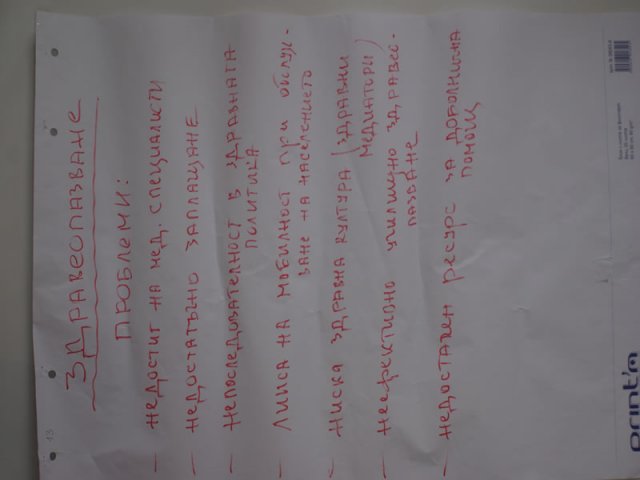 ЗДРАВЕОПАЗВАНЕ
ПРОБЛЕМИ:
— НЕДОСТИГ НА МЕД. СПЕЦИАЛИСТИ
— НЕДОСТАТЪЧНО ЗАПЛАЩАНЕ
— НЕПОСЛЕДОВАТЕЛНОСТ В ЗДРАВНАТА
ПОЛИТИКА
— ЛИПСА НА МОБИЛНОСТ ПРИ ОБСЛУЖ-
ВАНЕ НА НАСЕЛЕНИЕТО
— НИСКА ЗДРАВНА КУЛТУРА (ЗДРАВНИ
МЕДИАТОРИ)
— НЕЕФЕКТИВНО УЧИЛИЩНО ЗДРАВЕО-
ПАЗВАНЕ
— НЕДОСТАТЪЧЕН РЕСУРС ЗА ДОБОЛНИЧНА
ПОМОЩ
13
print'm